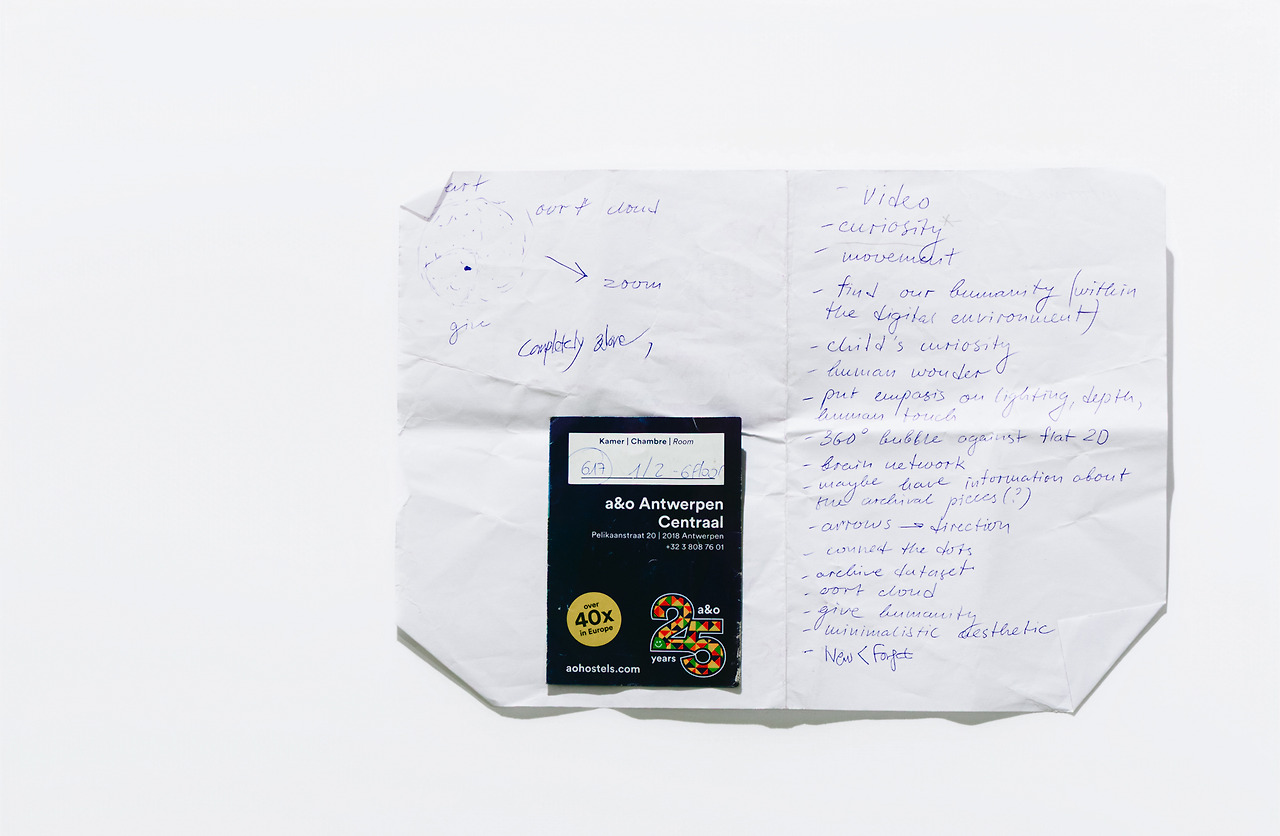 art
oort cloud
zoom
give
completely alone,
Kamer | Chambre | Room
617 1/2 - 6floor
a&o Antwerpen
Centraal
Pelikaanstraat 20 | 2018 Antwerpen
+32 3 808 76 01
over
40x
in Europe
a&o
25
years
aohostels.com
- Video
- curiosity*
- movement
- find our humanity (within
the digital environment)
- child's curiosity
- human wonder
- put empasis on lighting, depth,
human touch
- 360° bubble against flat 2D
- brain network
- maybe have information about
the archival pieces (?)
- arrows → direction
- connect the dots
- archive dataset
- oort cloud
- give humanity
- minimalistic aesthetic
- New < Forget